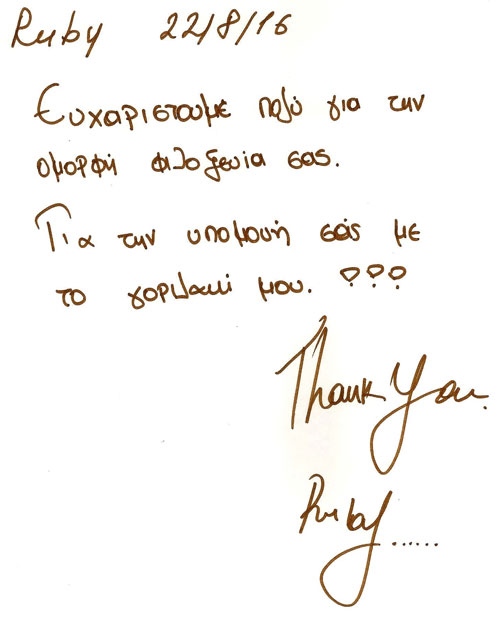 Ruby 22/8/16
Ευχαριστουμε πολύ για την
ομορφή φιλοξενία σας.
Για την υπομονή σάς με
το γοριλακί μου. !!!
Thank You.
Ruby......